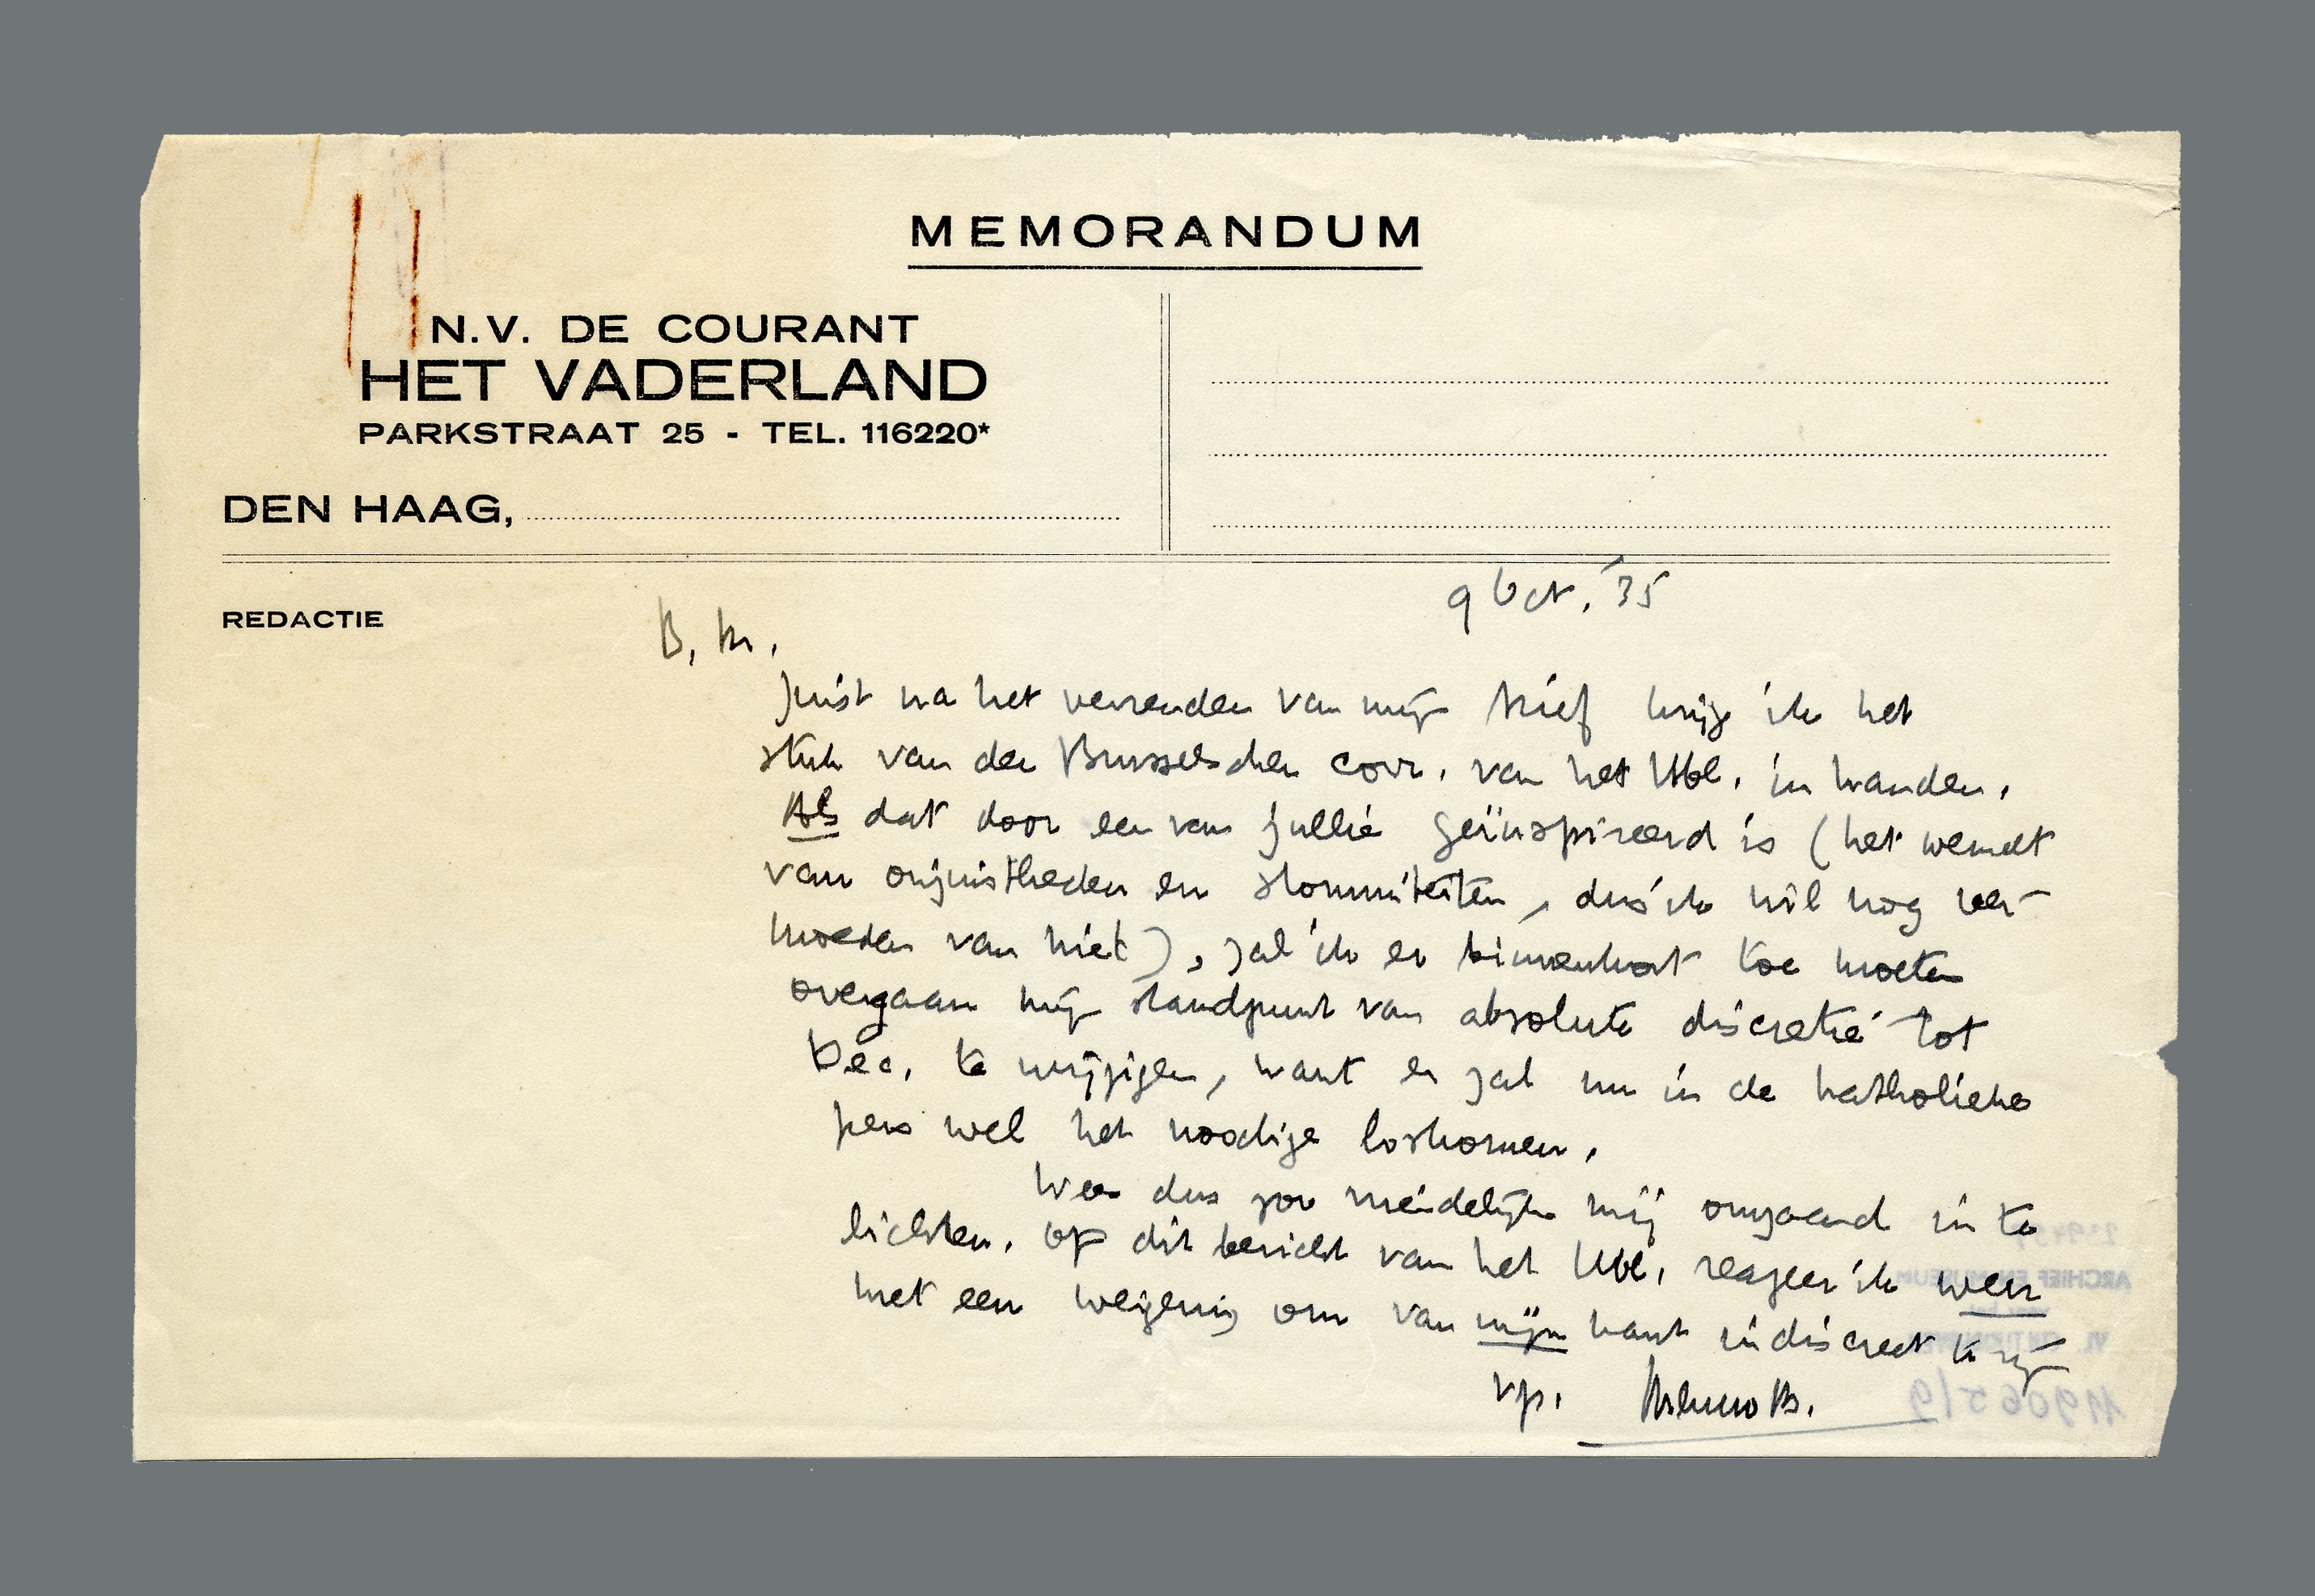 MEMORANDUM
N.V. DE COURANT
HET VADERLAND
PARKSTRAAT 25 - TEL. 116220*
DEN HAAG,
REDACTIE
9 Oct. '35
B. M.
Juist na het verzenden van mijn brief krijg ik het
stuk van den Brusselschen corr. van het Hbl. in handen.
Als dat door een van jullie geïnspireerd is (het wemelt
van onjuistheden en stommiteiten, dus ik wil nog ver-
moeden van niet), zal ik er binnenkort toe moeten
overgaan mijn standpunt van absolute discretie tot
Dec. te wijzigen, want er zal nu in de katholieke
pers wel het noodige loskomen.
Wees dus zoo vriendelijk mij omgaand in te
lichten. Op dit bericht van het Hbl. reageer ik weer
met een weigering om van mijn kant indiscreet te zijn
vr. gr. Menno t. B.
119065/9